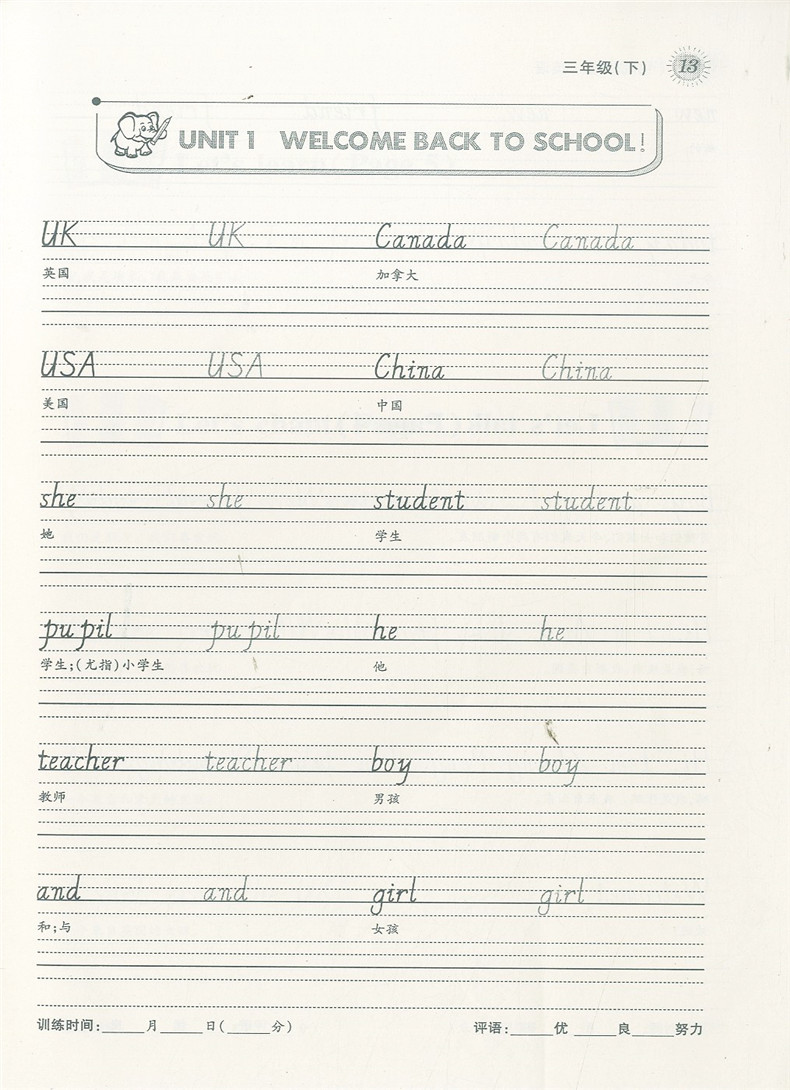 三年级(下) 13
UNIT 1 WELCOME BACK TO SCHOOL!
UK UK Canada Canada
英国 加拿大
USA USA China China
美国 中国
she she student student
她 学生
pupil pupil he he
学生;(尤指)小学生 他
teacher teacher boy boy
教师 男孩
and and girl girl
和;与 女孩
训练时间:_____月_____日(_____分) 评语:_____优 _____良_____努力